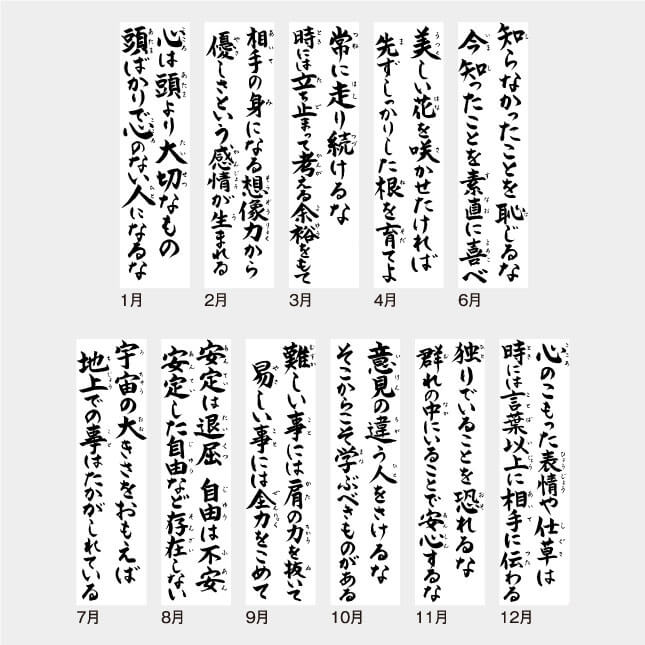 心は頭より大切なもの
頭ばかりで心のない人になるな
1月
相手の身になる想像力から
優しさという感情が生まれる
2月
常に走り続けるな
時には立ち止まって考える余裕をもて
3月
美しい花を咲かせたければ
先ずしっかりした根を育てよ
4月
知らなかったことを恥じるな
今知ったことを素直に喜べ
6月
宇宙の大きさをおもえば
地上での事はたかがしれている
7月
安定は退屈 自由は不安
安定した自由など存在しない
8月
難しい事には肩の力を抜いて
易しい事には全力をこめて
9月
意見の違う人をさけるな
そこからこそ学ぶべきものがある
10月
独りでいることを恐れるな
群れの中にいることで安心するな
11月
心のこもった表情や仕草は
時には言葉以上に相手に伝わる
12月